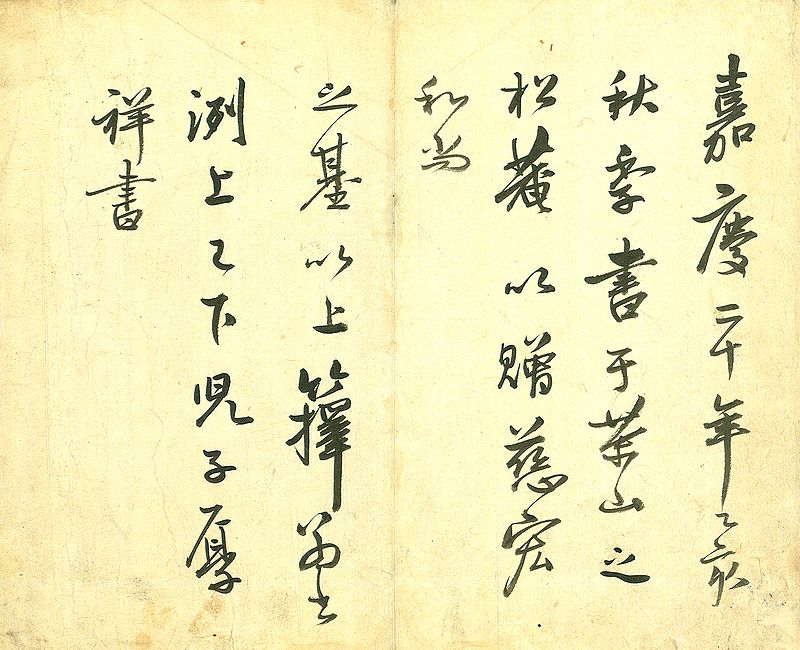 嘉慶二十年乙亥
秋季書于茶山之
松菴 以贈慈宏
和尚
之基以上籜翁
洌上下児子厚
祥書